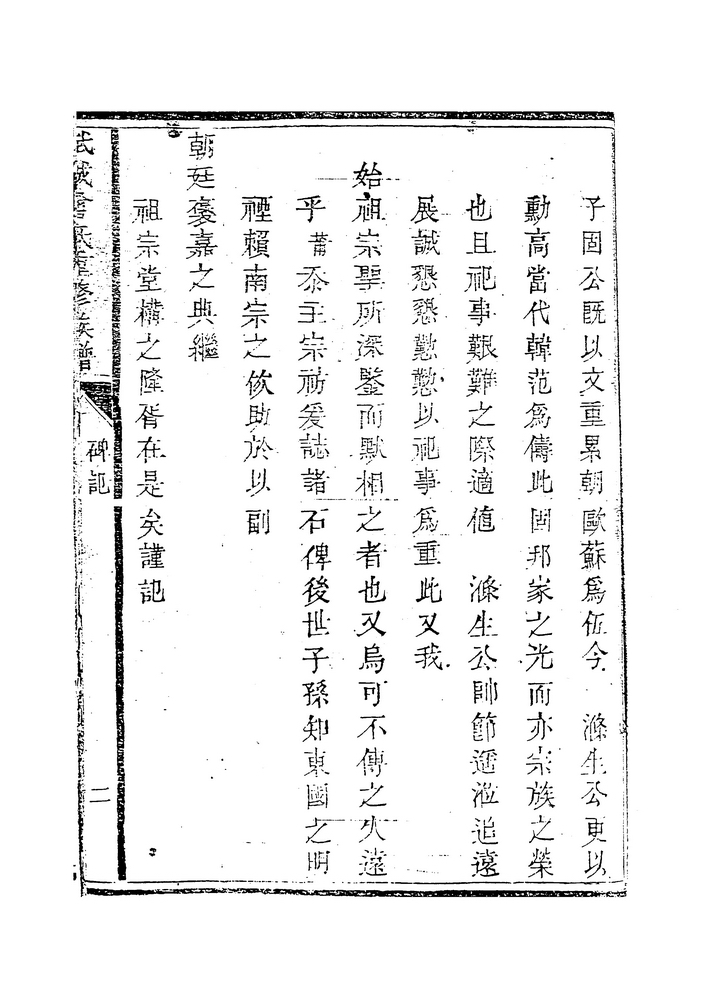 子固公既以文重累朝歐蘇為伍今　滌生公更以
勳高當代韓范為儔此固邦家之光而亦宗族之榮
也且祀事艱難之際適值　滌生公帥節遥涖追遠
展誠懇懇懃懃以祀事為重此又我
始祖宗聖所深鑒而默相之者也又烏可不傳之久遠
乎莆忝主宗祊爰誌諸石俾後世子孫知東國之明
禋賴南宗之佽助於以副
朝廷褒嘉之典繼
祖宗堂構之隆胥在是矣謹記
武城曾氏重修族譜
碑記
二